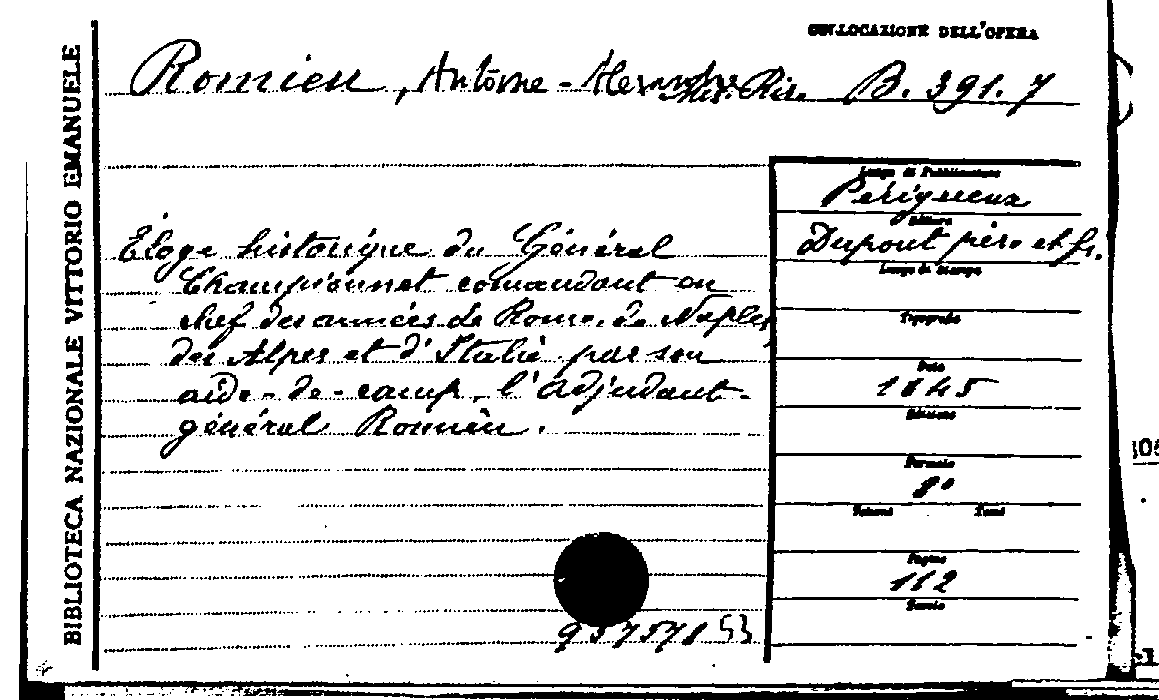 BIBLIOTECA NAZIONALE VITTORIO EMANUELE
COLLOCAZIONE DELL'OPERA
Romieu, Antoine-Alexandre Ris. B. 391.7
Luogo di Pubblicazione
Périgueux
Editore
Dupont père et fs.
Luogo di Stampa
Tipografia
Data
1845
Edizione
Formato
8°
Volumi Tomi
Pagine
112
Éloge historique du Général
Championnet comandant en
chef des armées de Rome, de Naples
des Alpes et d'Italie par son
aide-de-camp, l'adjudant-
général Romieu.